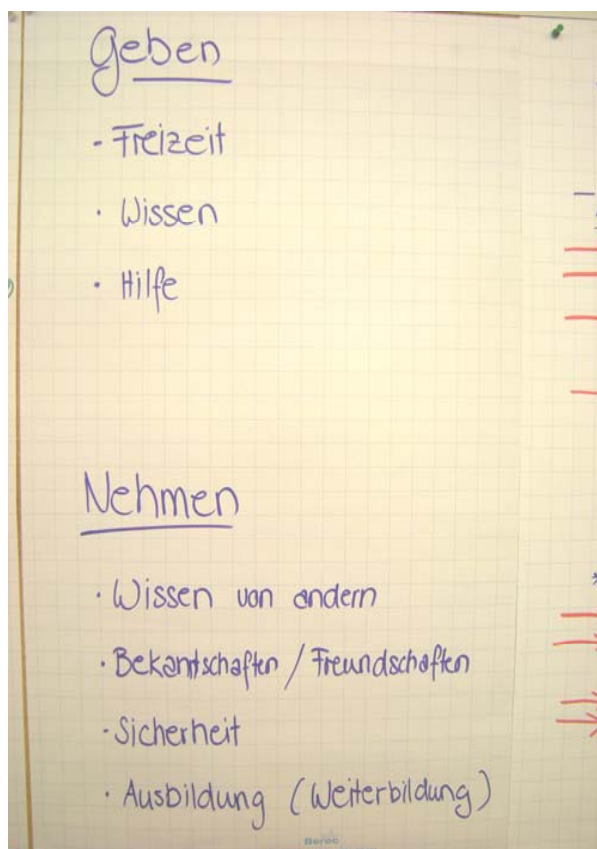 Geben
- Freizeit
· Wissen
· Hilfe
Nehmen
· Wissen von andern
· Bekantschaften / Freundschaften
· Sicherheit
· Ausbildung (Weiterbildung)
Berec